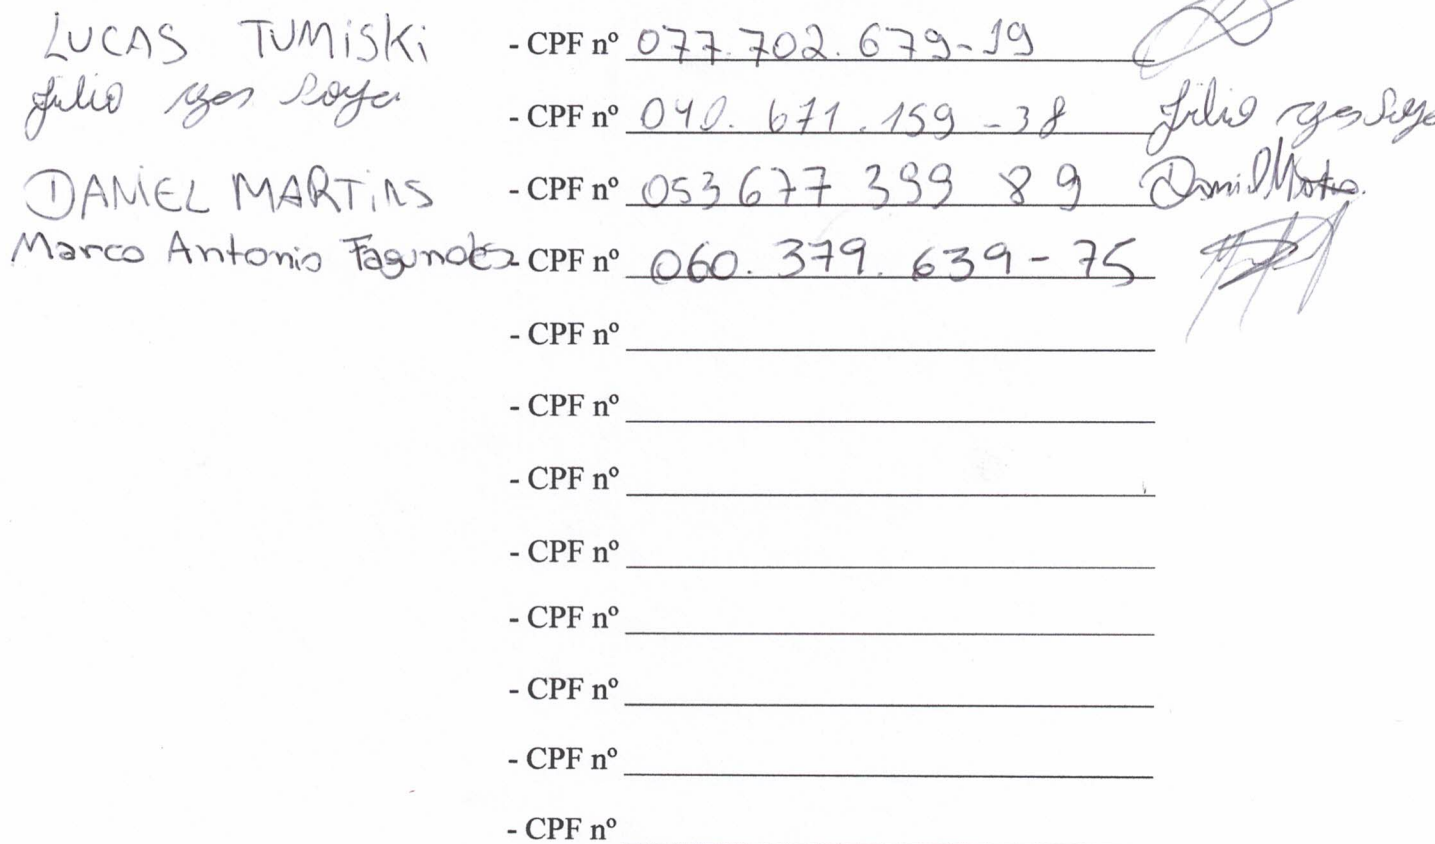 LUCAS TUMiSKi - CPF nº 077.702.679-19
Julio - CPF nº 040.671.159-38 Julio
DANiEL MARTiNS - CPF nº 053 677 399 89 Daniel
Marco Antonio Fagundes - CPF nº 060.379.639-75
- CPF nº
- CPF nº
- CPF nº
- CPF nº
- CPF nº
- CPF nº
- CPF nº
- CPF nº